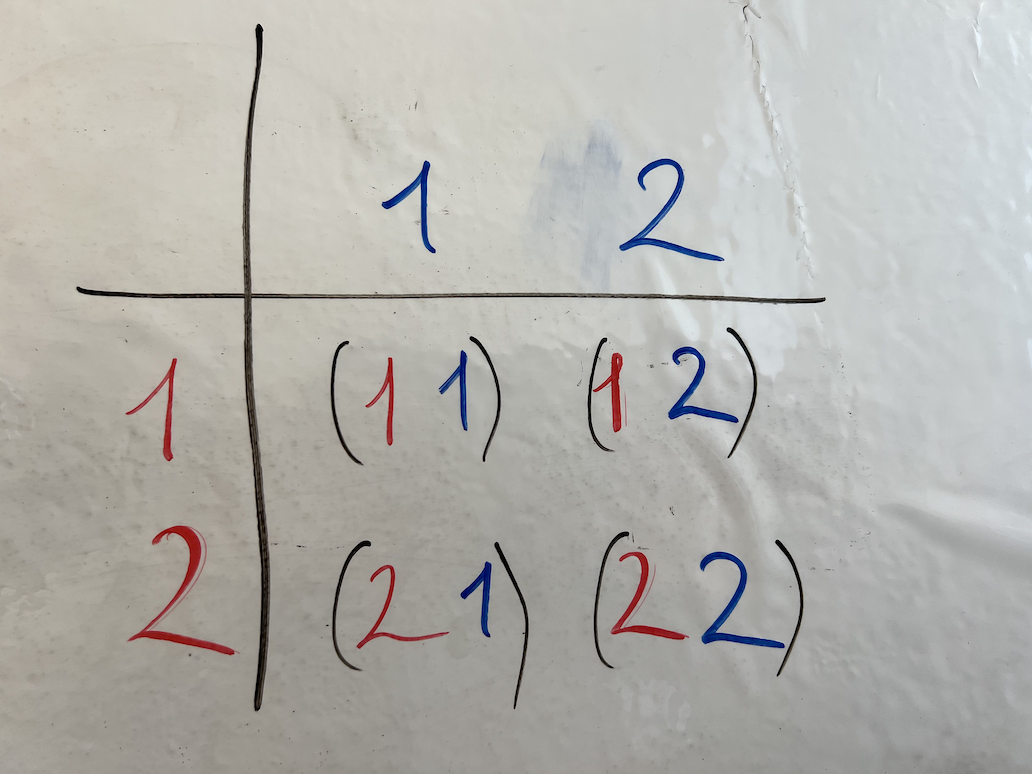 1 2
1 (1 1) (1 2)
2 (2 1) (2 2)